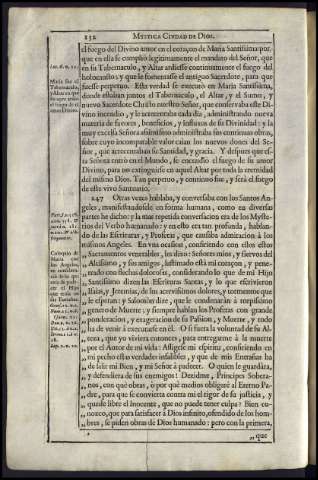 232 MYSTICA CIUDAD DE DIOS.
el fuego del Divino amor en el coraçon de Maria Santissima por-
que en ella se cumpliò legitimamente el mandato del Señor, que
en su Tabernaculo, y Altar ardiesse continuamente el fuego del
holocausto, y que le fomentasse el antiguo Sacerdote, para que
fuesse perpetuo. Esta verdad se executò en Maria Santissima,
donde estaban juntos el Tabernaculo, el Altar, y el Sumo, y
nuevo Sacerdote Christo nuestro Señor, que conservaba este Di-
vino incendio, y le acrecentaba cada dia, administrando nueva
materia de favores, beneficios, è influxos de su Divinidad: y la
muy excelsa Señora assimismo administraba sus continuas obras,
sobre cuyo incomparable valor caian los nuevos dones del Se-
ñor, que acrecentaban su Santidad, y gracia. Y despues que es-
ta Señora entrò en el Mundo, se encendiò el fuego de su amor
Divino, para no extinguirse en aquel Altar por toda la eternidad
del mismo Dios. Tan perpetuo, y continuo fue, y serà el fuego
de este vivo Santuario.
247 Otras vezes hablaba, y conversaba con los Santos An-
geles, manifestandosele en forma humana, como en diversas
partes he dicho: y la mas repetida conversacion era de los Myste-
rios del Verbo humanado: y en esto era tan profunda, hablan-
do de las Escrituras, y Profetas, que causaba admiracion à los
mismos Angeles. En una ocasion, confiriendo con ellos estos
Sacramentos venerables, les dixo: Señores mios, y siervos del
Altissimo, y sus amigos; lastimado està mi coraçon, y pene-
trado con flechas dolorosas, considerando lo que de mi Hijo
Santissimo dizen las Escrituras Santas, y lo que escrivieron
Isaias, y Jeremias, de los acervissimos dolores, y tormentos que
le esperan: y Salomòn dize, que le condenaràn à torpissimo
genero de Muerte: y siempre hablan los Profetas con grande
ponderacion, y exageracion de su Passion, y Muerte, y todo
ha de venir à executarse en èl. O si fuera la voluntad de su Al-
teza, que yo viviera entonces, para entregarme à la muerte
por el Autor de mi vida! Afligese mi espiritu, confiriendo en
mi pecho estas verdades infalibles, y que de mis Entrañas ha
de salir mi Bien, y mi Señor à padecer. O quien le guardàra,
y defendiera de sus enemigos! Dezidme, Principes Sobera-
nos, con què obras, ò por què medios obligarè al Eterno Pa-
dre, para que se convierta contra mi el rigor de su justicia, y
quede libre el Inocente, que no puede tener culpa? Bien co-
nozco, que para satisfacer à Dios infinito, ofendido de los hom-
bres, se piden obras de Dios humanado: pero con la primera,
„ que